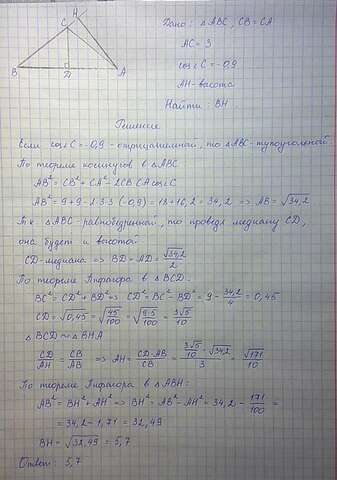 Дано: △ABC, CB=CA
AC = 3
cos∠C = -0,9
AH-высота
Найти: BH.
H
C
B
D
A
Решение
Если cos∠C = -0,9 - отрицательный, то △ABC-тупоугольный
По теореме косинусов в △ABC
AB² = CB² + CA² - 2CB·CA cos∠C
AB² = 9+9-2·3·3·(-0,9) = 18+16,2 = 34,2 => AB = √34,2.
Т.к △ABC-равнобедренный, то проведя медиану CD,
она будет и высотой
CD-медиана => BD = AD = √34,2/2
По теореме Пифагора в △BCD.
BC² = CD² + BD² => CD² = BC² - BD² = 9 - 34,2/4 = 0,45
CD = √0,45 = √(45/100) = √(9·5/100) = 3√5/10
△BCD ~ △BHA
CD/AH = CB/AB => AH = CD·AB/CB = (3√5/10 · √34,2)/3 = √171/10
По теореме Пифагора в △ABH:
AB² = BH² + AH² => BH² = AB² - AH² = 34,2 - 171/100 =
= 34,2 - 1,71 = 32,49
BH = √32,49 = 5,7
Ответ: 5,7